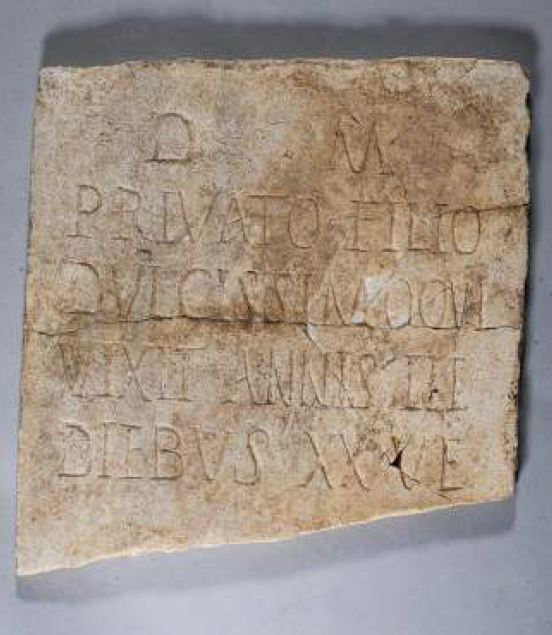 D M
PRIVATO FILIO
DVLCISSIMO QVI
VIXIT ANNIS III
DIEBVS XXVE